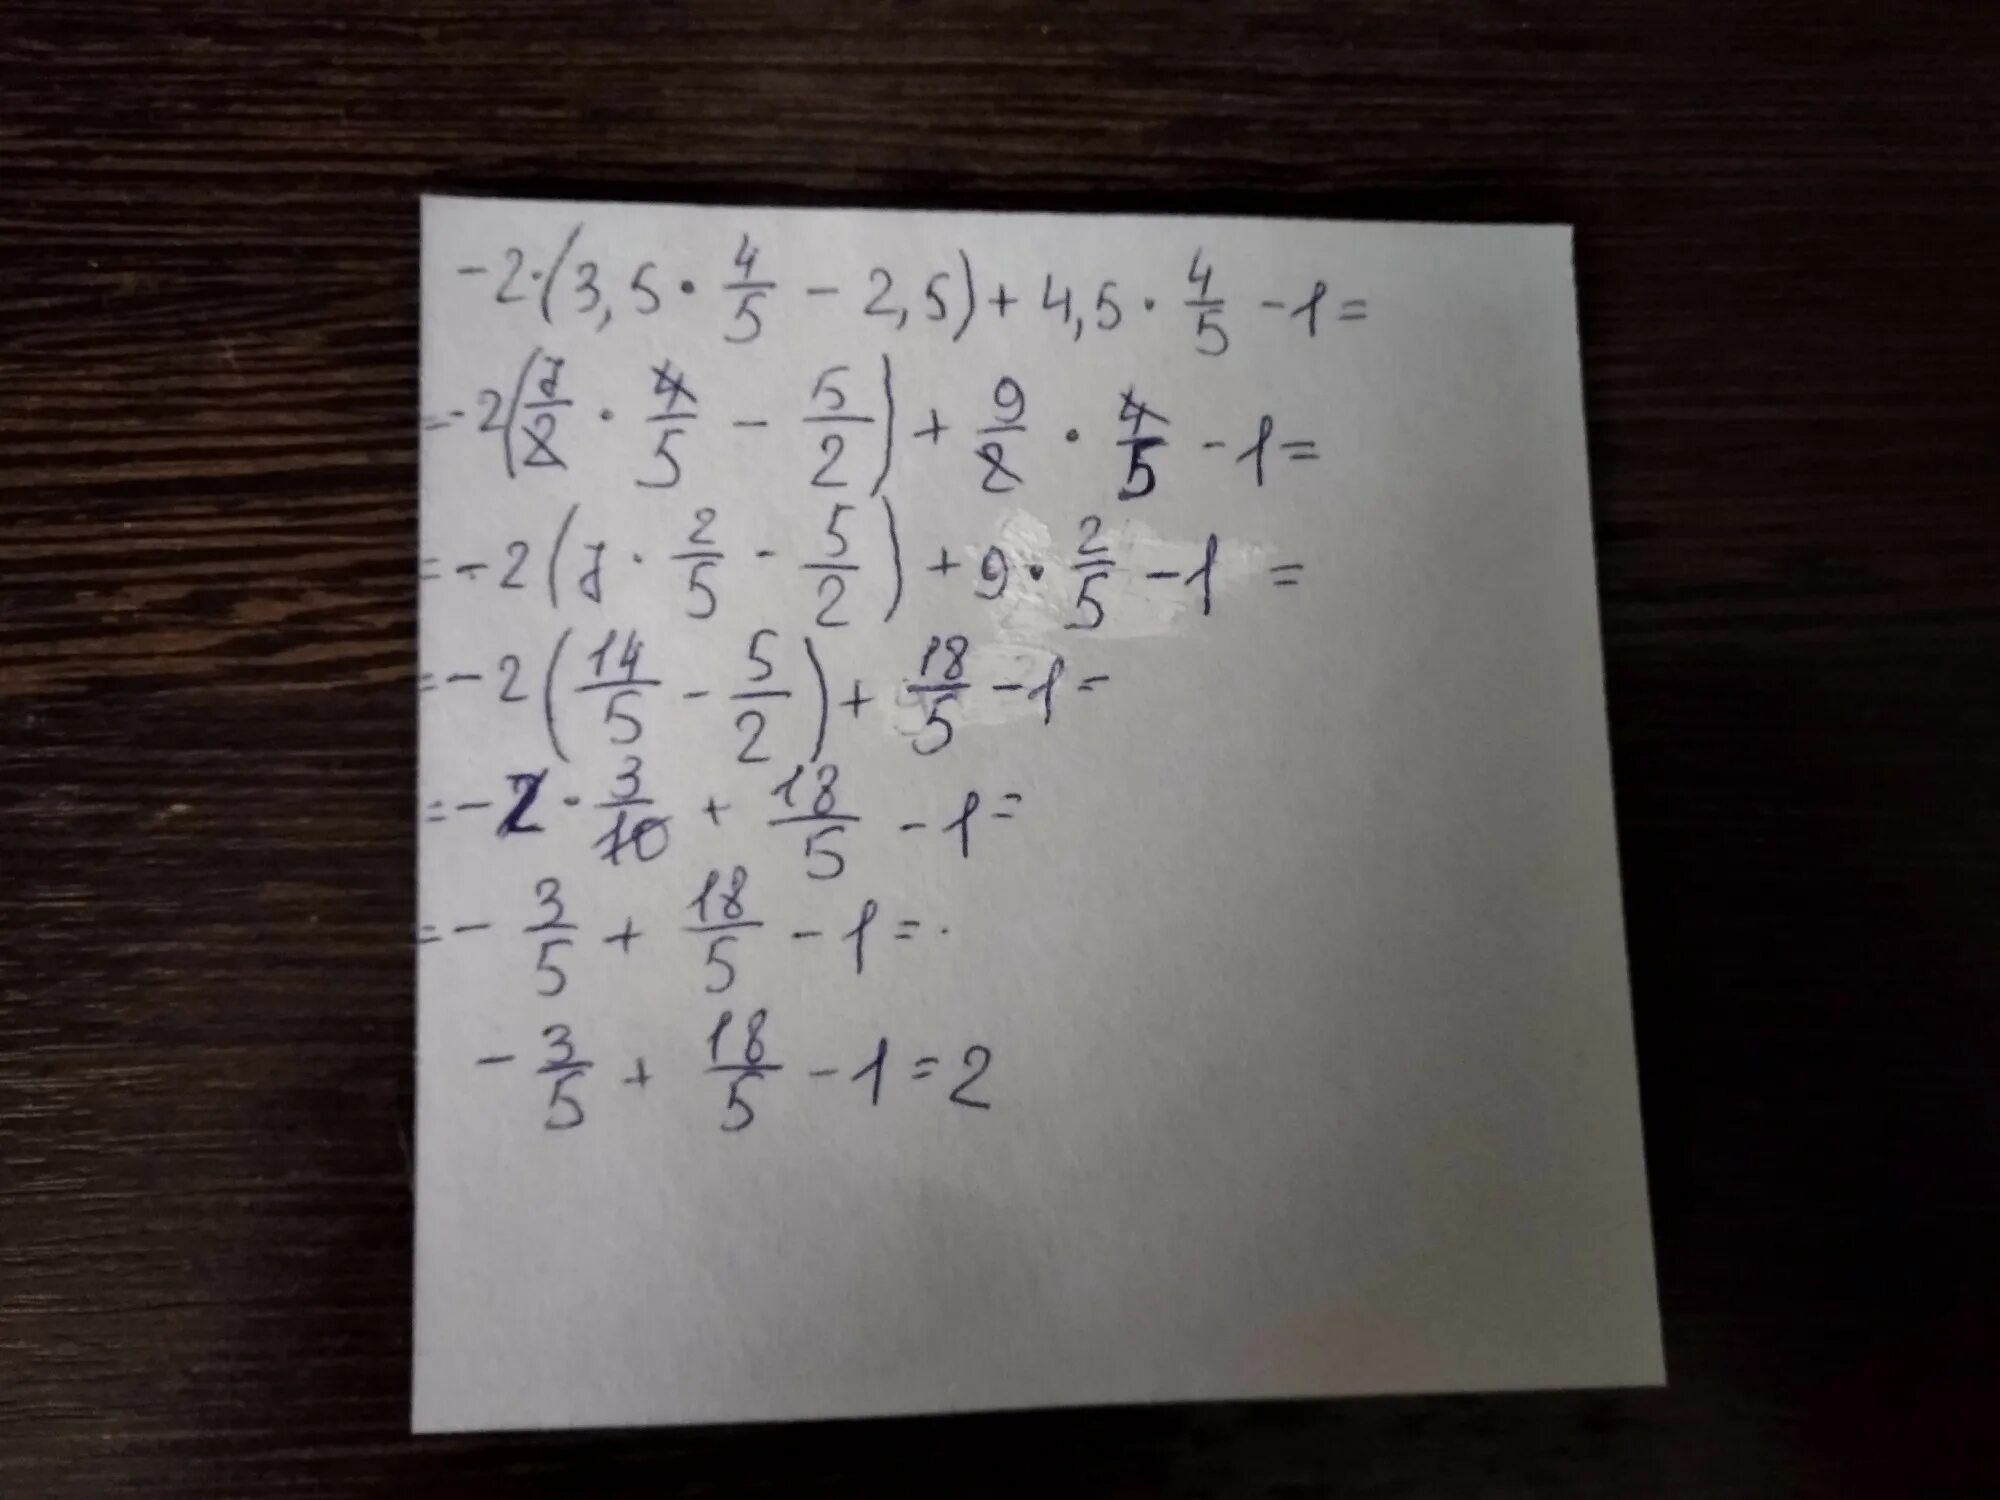 -2·(3,5 · 4/5 - 2,5) + 4,5 · 4/5 - 1 =
= -2(7/2 · 4/5 - 5/2) + 9/2 · 4/5 - 1 =
= -2(7 · 2/5 - 5/2) + 9 · 2/5 - 1 =
= -2(14/5 - 5/2) + 18/5 - 1 =
= -2 · 3/10 + 18/5 - 1 =
= - 3/5 + 18/5 - 1 =
- 3/5 + 18/5 - 1 = 2